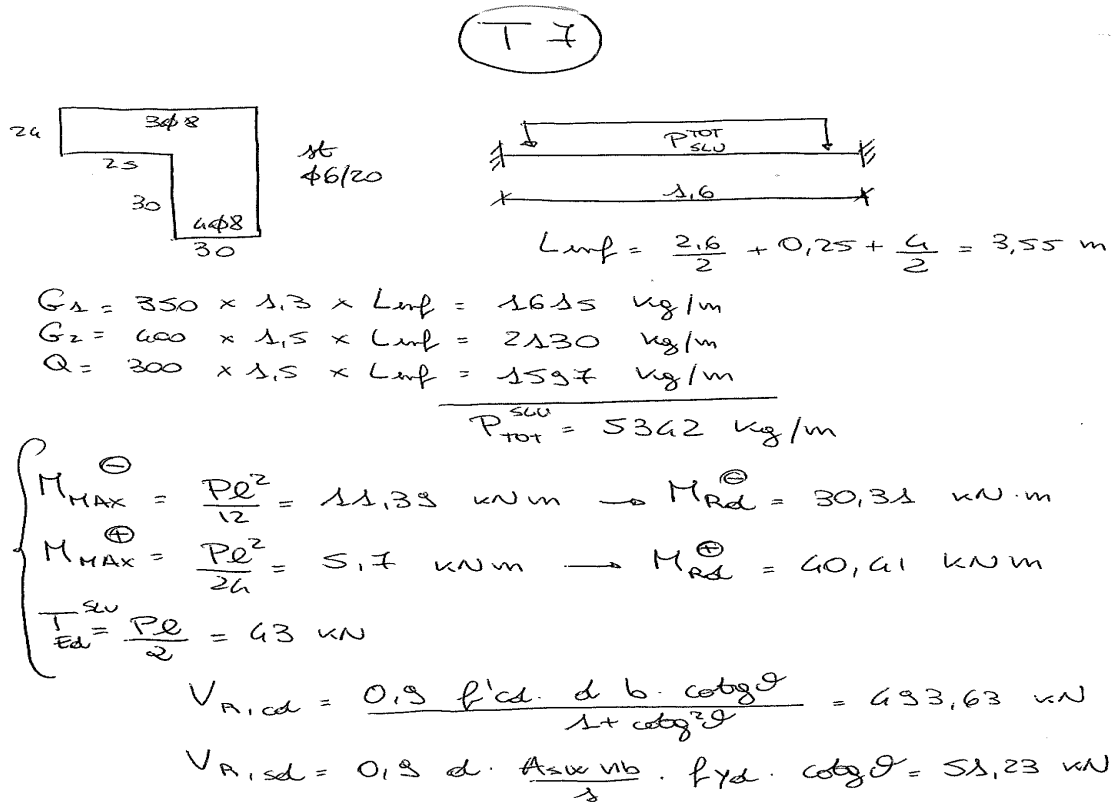 T 7
24
3ϕ8
25
30
4ϕ8
30
st
ϕ6/20
P^TOT_SLU
1,6
Linf = 2,6/2 + 0,25 + 4/2 = 3,55 m
G1 = 350 × 1,3 × Linf = 1615 kg/m
G2 = 400 × 1,5 × Linf = 2130 kg/m
Q = 300 × 1,5 × Linf = 1597 kg/m
P^SLU_TOT = 5342 kg/m
M_MAX^⊖ = Pℓ²/12 = 11,39 kNm → M_Rd^⊖ = 30,31 kN·m
M_MAX^⊕ = Pℓ²/24 = 5,7 kNm → M_Rd^⊕ = 40,41 kNm
T_Ed^SLU = Pℓ/2 = 43 kN
V_R,cd = 0,9 f'cd. d b. cotgϑ / 1+cotg²ϑ = 493,63 kN
V_R,sd = 0,9 d. Asw nb/s . fyd. cotgϑ = 51,23 kN